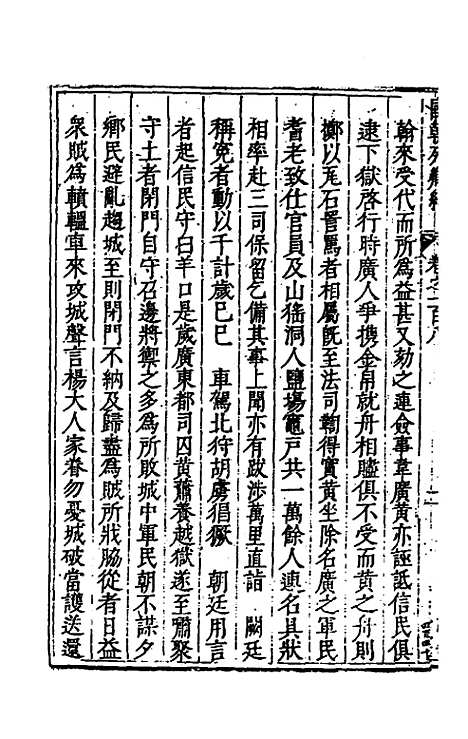 翰來受代而所為益甚又劾之連僉事韋廣黃亦誣詆信民俱
逮下獄啓行時廣人爭攜金帛就舟相贐俱不受而黃之舟則
擲以瓦石詈罵者相屬旣至法司鞫得實黃坐除名廣之軍民
耆老致仕官員及山猺洞人鹽塲竈戶共一萬餘人連名具狀
相率赴三司保留乞備其事上聞亦有跋涉萬里直詣 闕廷
稱寃者動以千計歲巳巳 車駕北狩胡虜猖獗 朝廷用言
者起信民守白羊口是歲廣東都司囚黃蕭養越獄遂至嘯聚
守土者閉門自守召邊將禦之多為所敗城中軍民朝不謀夕
鄉民避亂趨城至則閉門不納及歸盡為賊所戕脇從者日益
衆賊為轒轀車來攻城聲言楊大人家眷勿憂城破當護送還